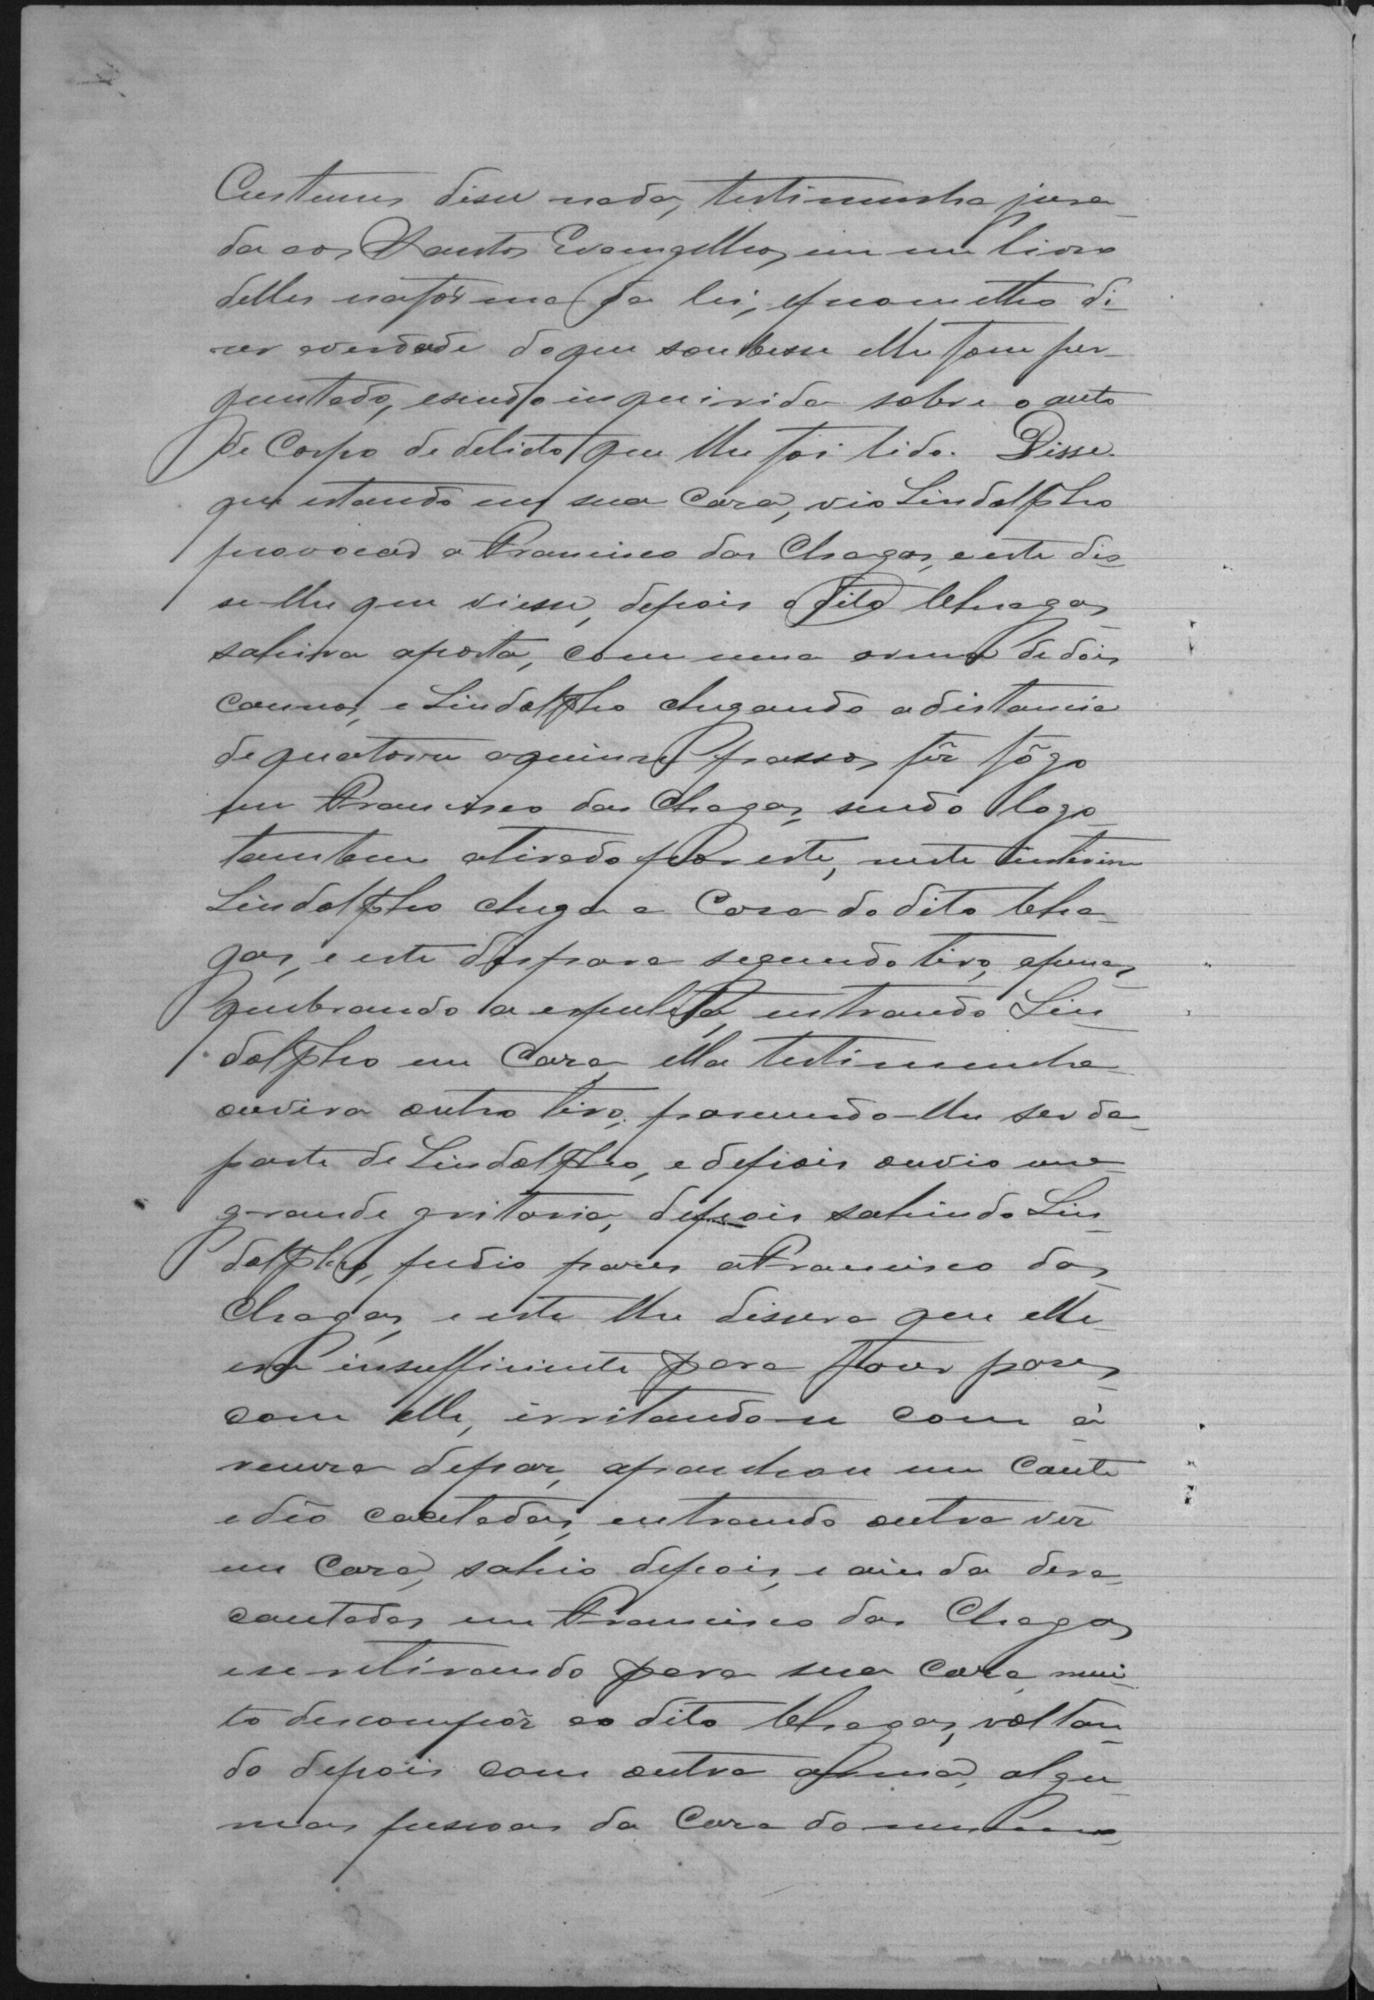 Custumes disse nada, testimunha jura-
da aos Santos Evangelhos, em um livro
delles na fórma da lei, e prometteo di-
zer averdade do que soubesse elhe fosse per-
guntado, esendo inquirida sobre o auto
de Corpo de delicto que lhe foi lido. Disse.
que estando em sua Caza, vio Lindolpho
provocar a Francisco das Chagas, e este dis-
se-lhe que viesse, depois o dito Chagas
sahira aporta, com uma arma de dois
cannos, e Lindolpho chegando a distancia
de quatorze a quinze passos fêz fôgo
em Francisco das Chagas, sendo logo
tambem atirado por este, neste interim
Lindolpho chega a Caza do dito Cha-
gas, e este dispara segundo tiro, apenas
quebrando a espuleta, entrando Lin-
dolpho em Caza ella testimunha
ouvira outro tiro, parecendo-lhe ser da
parte de Lindolpho, e depois ouvio uma
grande gritaria, depois sahindo Lin-
dolpho, pedio pazes a Francisco das
Chagas, e este lhe dissera que elle
era insufficiente para fazer pazes
com elle, irritando-se com á
recusa depaz, apanhou um Caute
e dêo cautadas, entrando outra vêz
em Caza, sahio depois, e ainda dera
cautadas em Francisco das Chagas
e se retirando para sua Caza, mui-
to descompôz ao dito Chagas, voltan-
do depois com outra arma, algu-
mas pessoas da Caza do mesmo